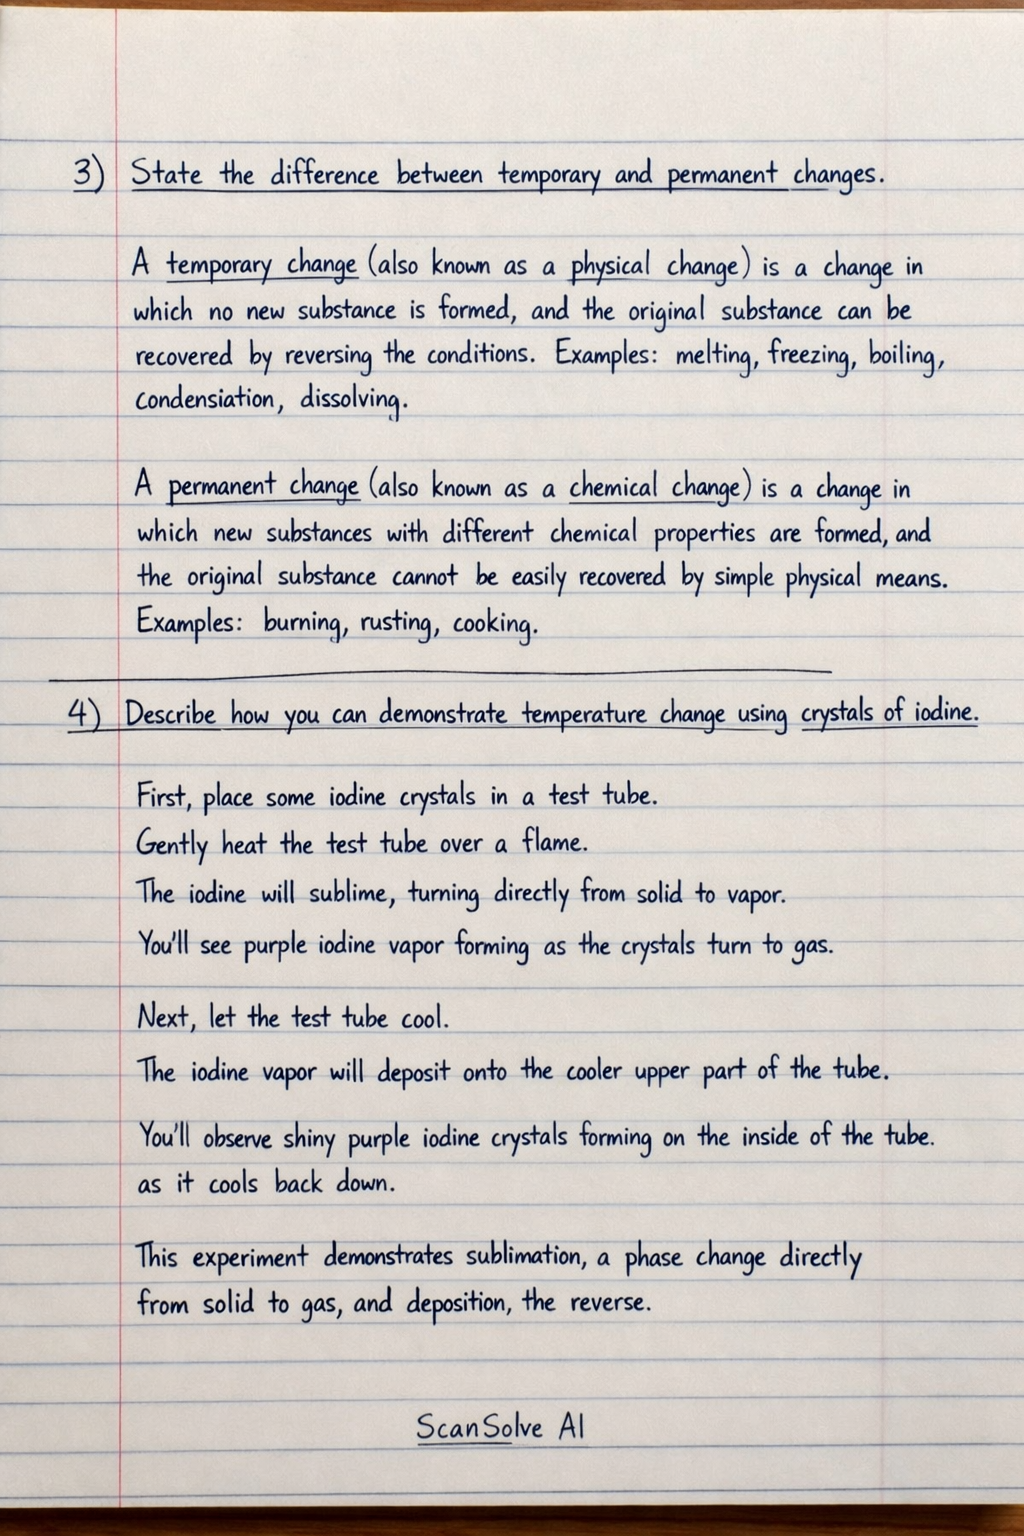 3) State the difference between temporary and permanent changes.
A temporary change (also known as a physical change) is a change in
which no new substance is formed, and the original substance can be
recovered by reversing the conditions. Examples: melting, freezing, boiling,
condensiation, dissolving.
A permanent change (also known as a chemical change) is a change in
which new substances with different chemical properties are formed, and
the original substance cannot be easily recovered by simple physical means.
Examples: burning, rusting, cooking.
4) Describe how you can demonstrate temperature change using crystals of iodine.
First, place some iodine crystals in a test tube.
Gently heat the test tube over a flame.
The iodine will sublime, turning directly from solid to vapor.
You'll see purple iodine vapor forming as the crystals turn to gas.
Next, let the test tube cool.
The iodine vapor will deposit onto the cooler upper part of the tube.
You'll observe shiny purple iodine crystals forming on the inside of the tube.
as it cools back down.
This experiment demonstrates sublimation, a phase change directly
from solid to gas, and deposition, the reverse.
ScanSolve AI